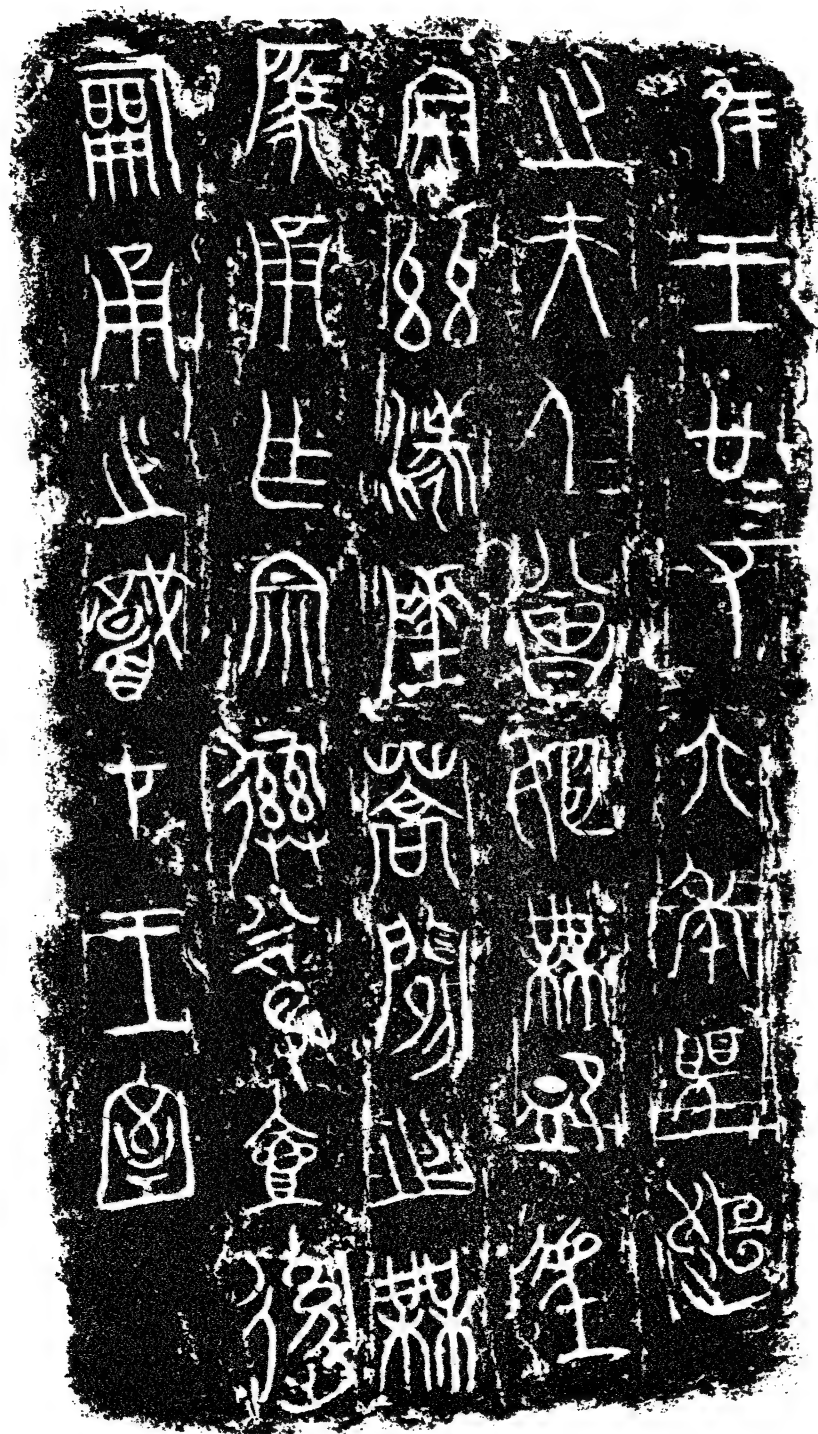 隹王廿又六年聖趄
之夫人曾姬無卹望
安茲漾陲蒿間之無
匹甬乍宗彝尊壺後
嗣甬之職才王室